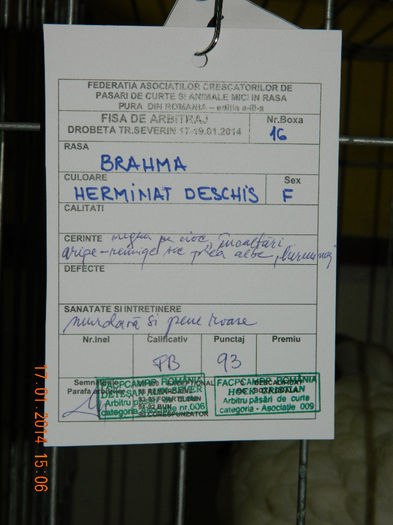 FEDERATIA ASOCIATIILOR CRESCATORILOR DE
PASARI DE CURTE SI ANIMALE MICI IN RASA
PURA DIN ROMANIA - editia a-III-a
FISA DE ARBITRAJ
DROBETA TR.SEVERIN 17-19.01.2014
Nr.Boxa
16
RASA
BRAHMA
CULOARE
HERMINAT DESCHIS
Sex
F
CALITATI
CERINTE negru pe cioc, încaltări
aripe - remige sec prea albe,
DEFECTE
SANATATE SI INTRETINERE
murdară si pene roase
Nr.inel Calificativ Punctaj Premiu
FB 93
Parafa
FACPCAMPR ROMÂNIA
DETEȘAN ALIN-SEVER
Arbitru
categoria nr.006
FACPCAMPR ROMÂNIA
CRISTIAN
Arbitru păsări de curte
categoria - Asociație 009
17.01.2014 15:06